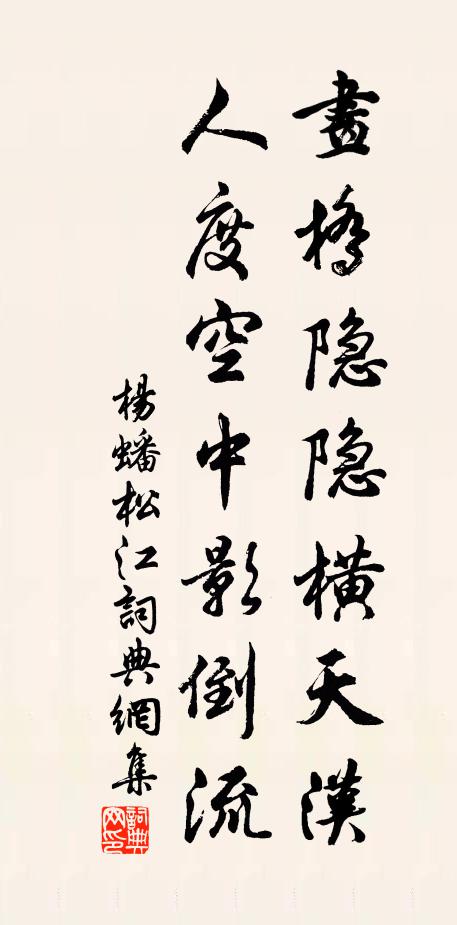 畫橋隐隐橫天漢
人度空中影倒流
楊蟠松江詞典網集
詞典網印